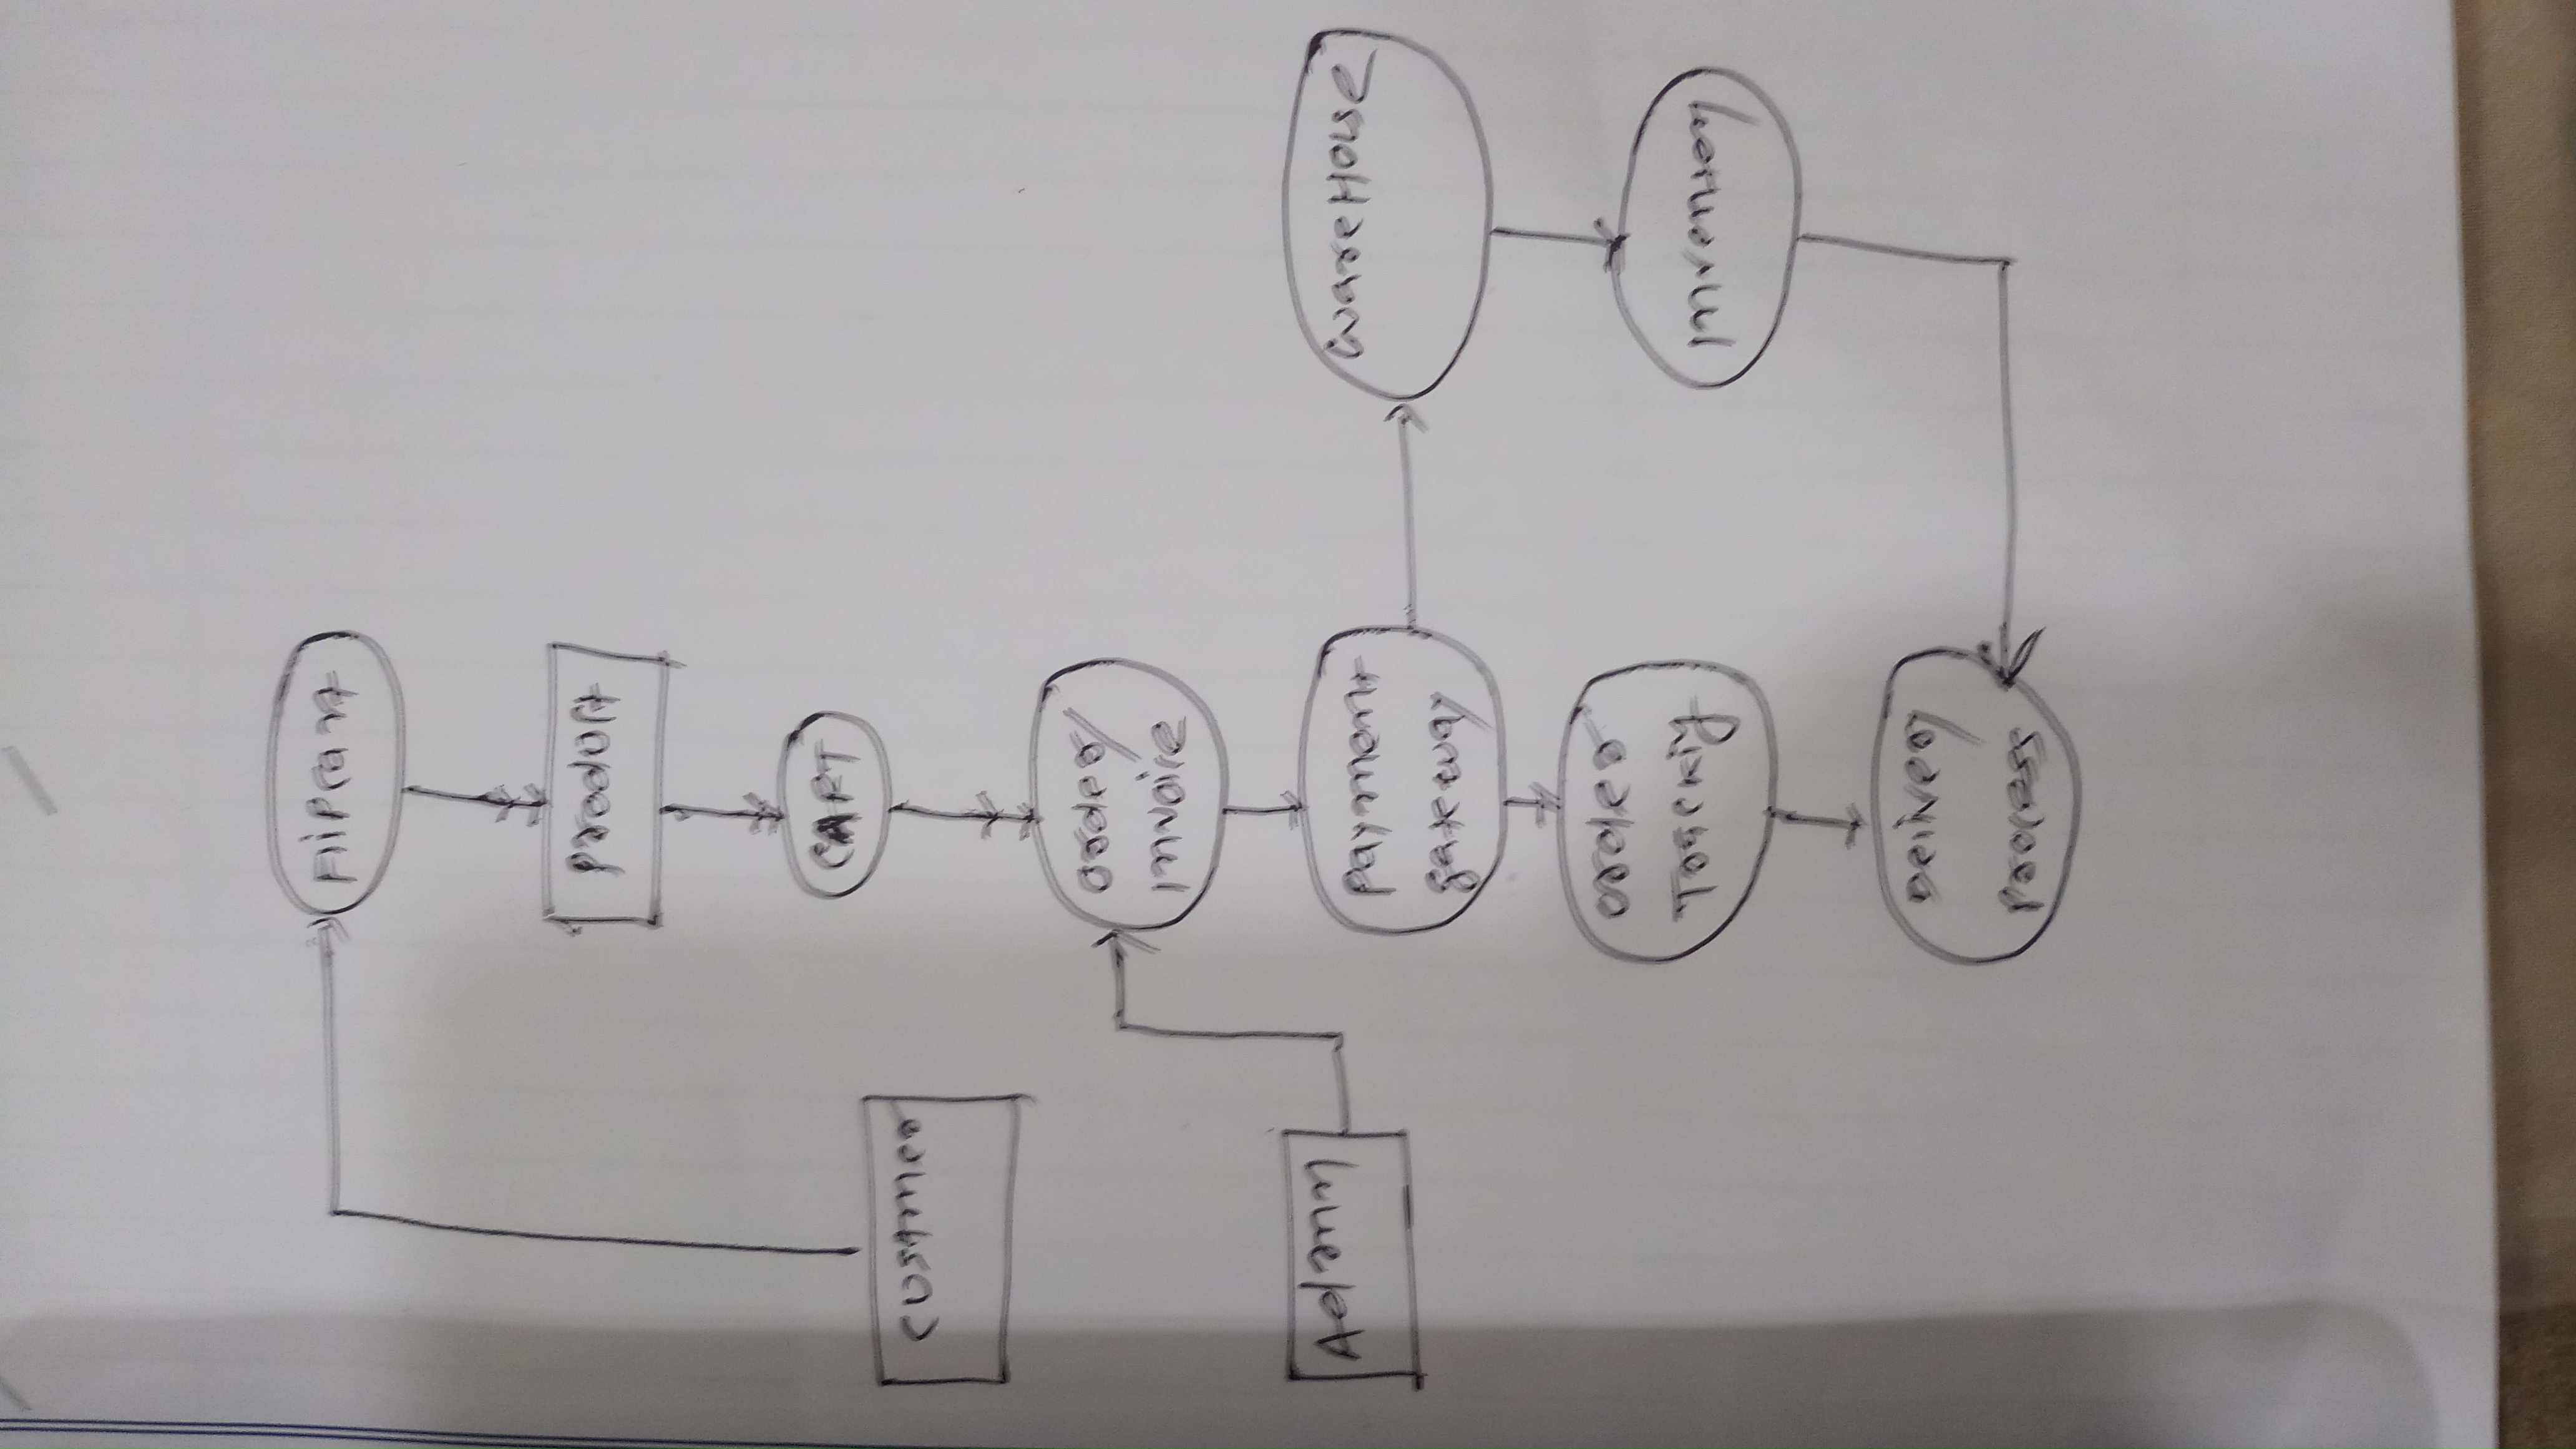 Flipcart
Product
CART
Custmer
Order/
Invoice
Admin
Payment
gateway
WareHouse
Order
Trackig
Inventory
Delivery
Process